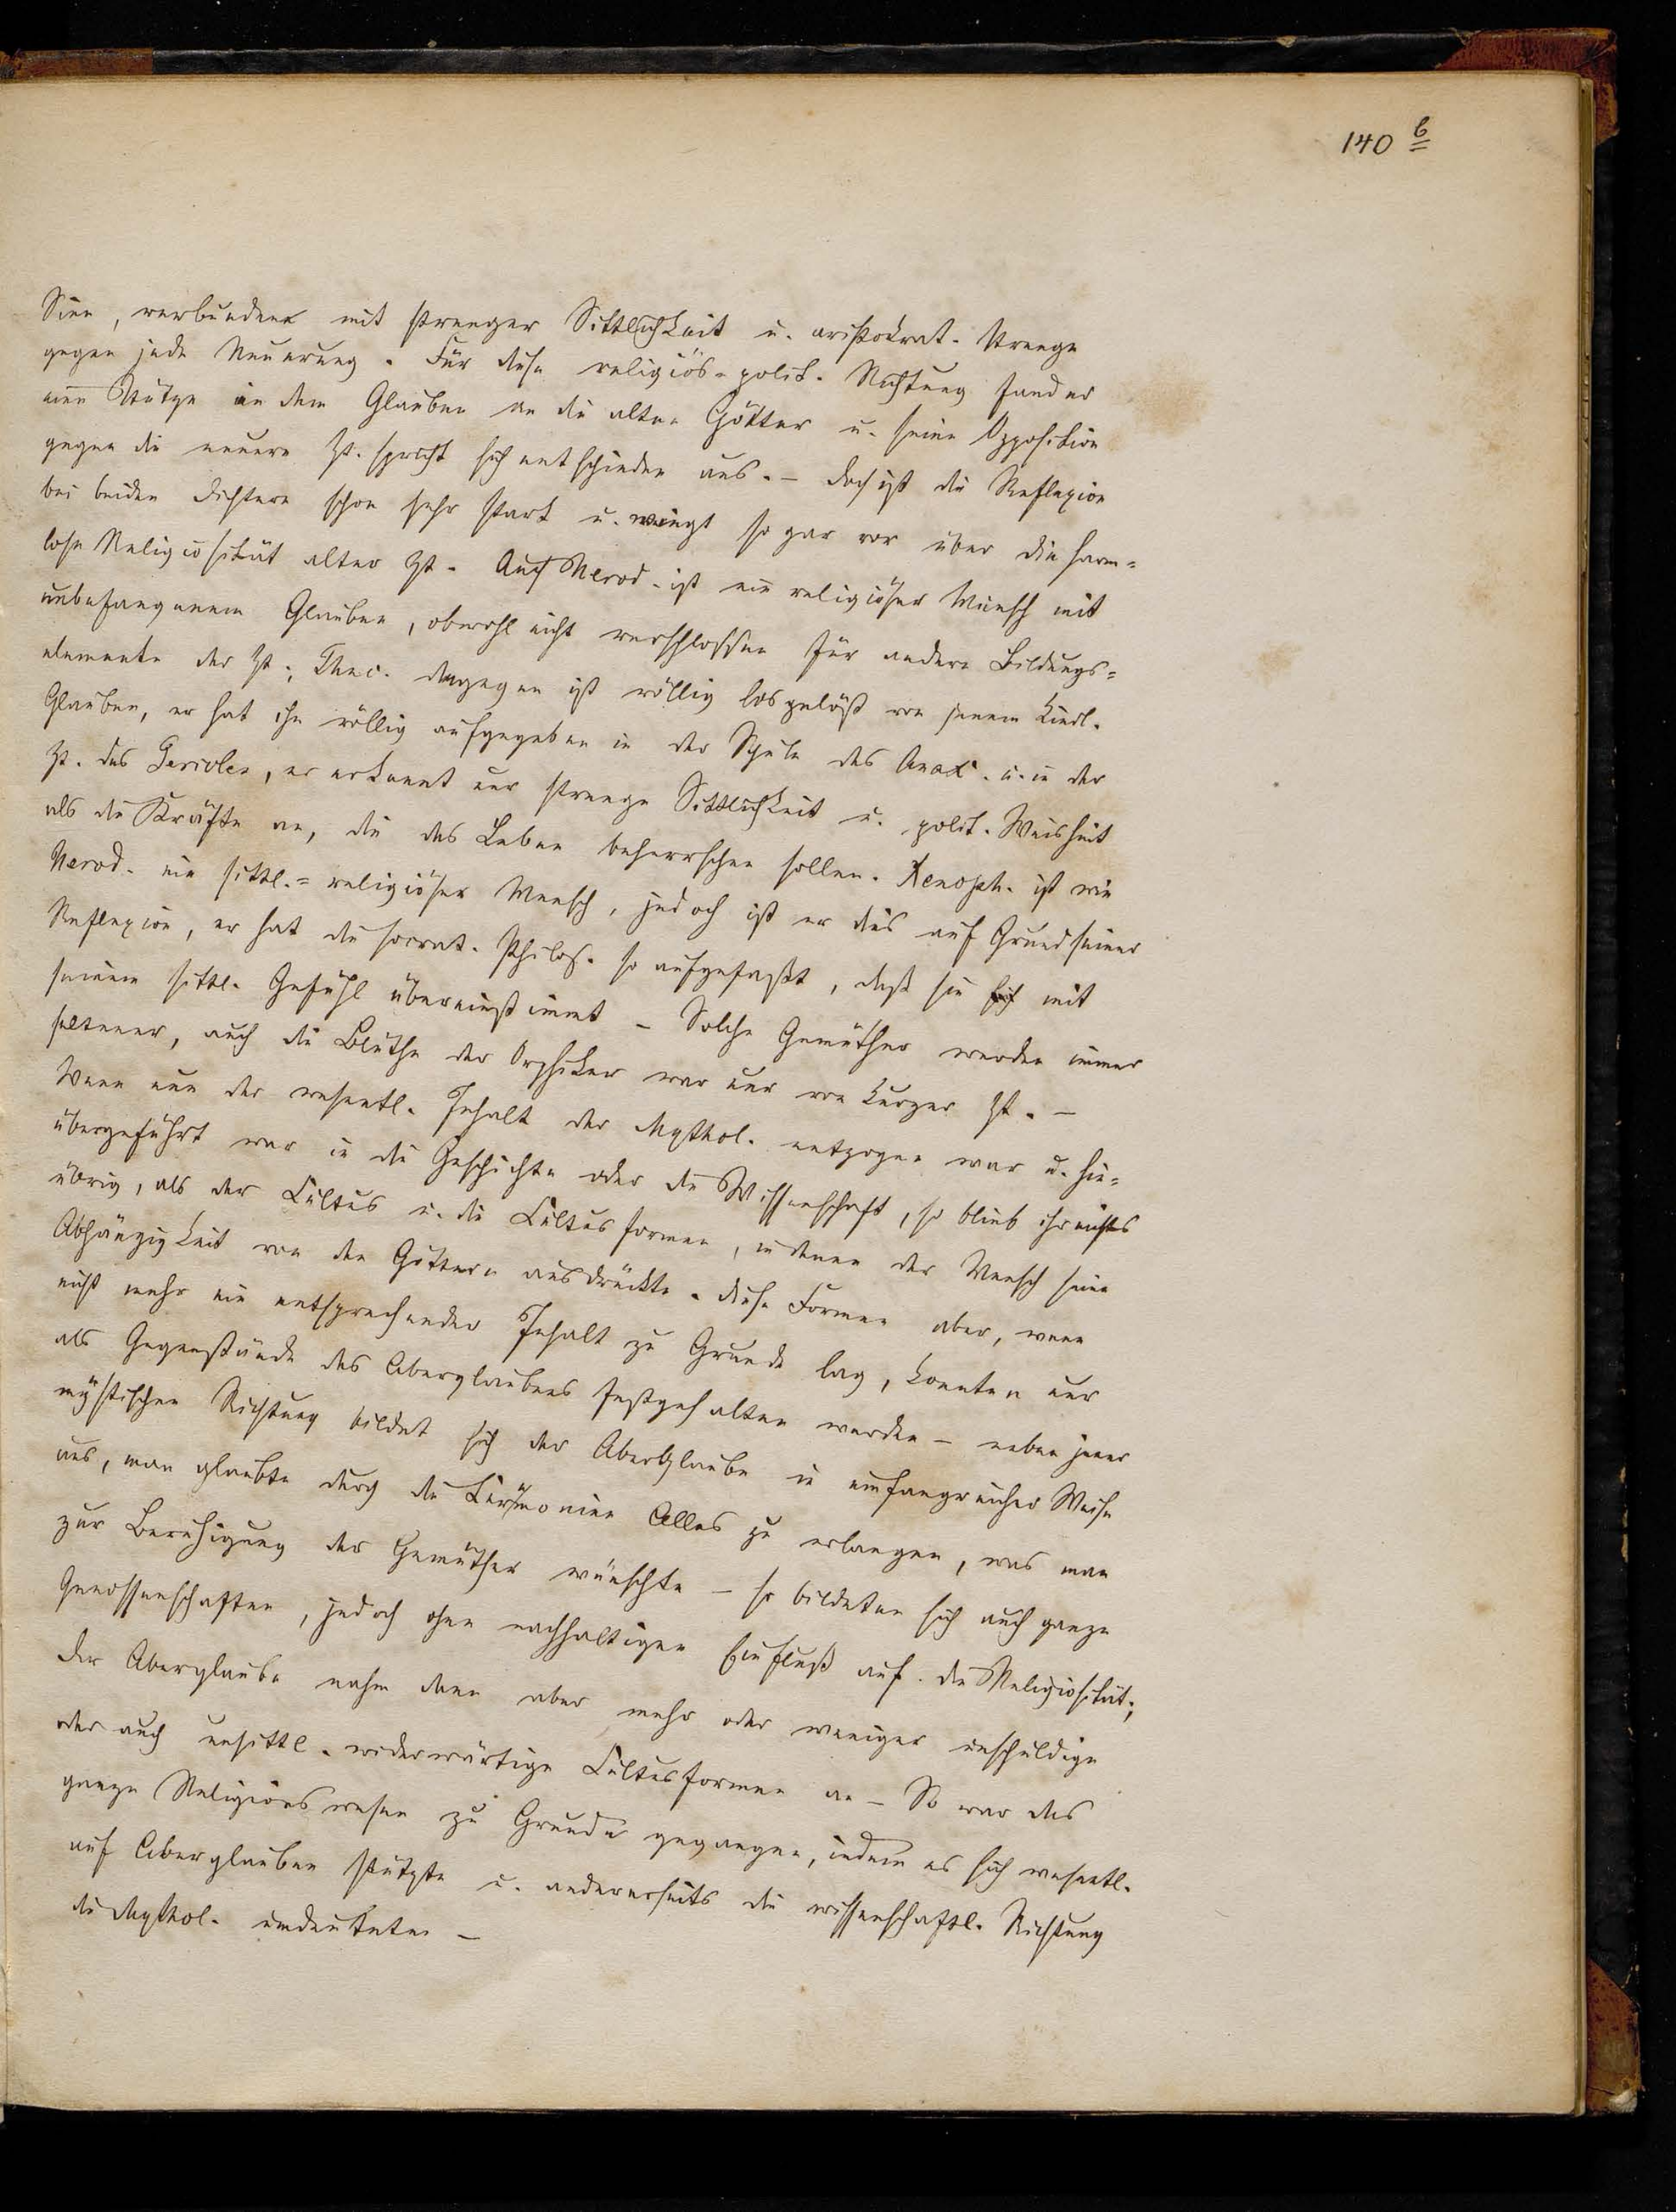 140 b
Sinn, verbunden mit strenger Sittlichkeit u. aristokrat. Strenge
gegen jede Neuerung. Für diese religiös-polit. Richtung fand er
eine Stütze in dem Glauben an die alten Götter u. seine Opposition
gegen die neuere Zt. spricht sich entschieden aus. – Doch ist die Reflexion
bei beiden Dichtern schon sehr stark u. wiegt sogar vor über die harm=
lose Religiosität alter Zt. Auch Herod. ist ein religiöser Mensch mit
unbefangenem Glauben, obwohl nicht verschlossen für andere Bildungs=
elemente der Zt.; Thuc. dagegen ist völlig losgelöst von jenem kindl.
Glauben, er hat ihn völlig aufgegeben in der Schule des Anax. u. in der
Zt. des Pericles, er erkennt nur strenge Sittlichkeit u. polit. Weisheit
als die Kräfte an, die das Leben beherrschen sollen. Xenoph. ist wie
Herod. ein sittl.=religiöser Mensch, jedoch ist er dies auf Grund seiner
Reflexion, er hat die socrat. Philos. so aufgefaßt, daß sie mit
seinem sittl. Gefühl übereinstimmt – Solche Gemüther werden immer
seltener, auch die Blüthe der Orphiker war nur von kurzer Zt. –
Wenn nun der wesentl. Inhalt der Mythol. entzogen war u. hin=
übergeführt war in die Geschichte oder die Wissenschaft, so blieb ihr nichts
übrig, als der Cultus u. die Cultusformen, in denen der Mensch seine
Abhängigkeit von den Göttern ausdrückte. Diese Formen aber, wenn
nicht mehr ein entsprechender Inhalt zu Grunde lag, konnten nur
als Gegenstände des Aberglaubens festgehalten werden – neben jener
mystischen Richtung bildet sich der Aberglaube in umfangreicher Weise
aus, man glaubte durch die Cärimonien Alles zu erlangen, was man
zur Beruhigung der Gemüther wünschte – so bildeten sich auch ganze
Genossenschaften, jedoch ohne nachhaltigen Einfluß auf die Religiosität;
der Aberglaube nahm denn aber mehr oder weniger unschuldige
oder auch unsittl. widerwärtige Cultusformen an – So war das
ganze Religionswesen zu Grunde gegangen, indem es sich wesentl.
auf Aberglauben stützte u. andererseits die wissenschaftl. Richtung
die Mythol. umdeutete. –